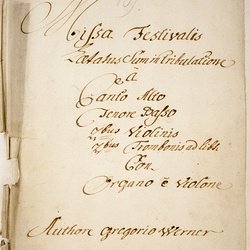 Missa Festivalis
Lætatus Sum in tribulatione
à
Canto Alto
Tenore Basso
2bus Violinis
2bus Trombonis ad lib:
Con
Organo è Violone
Authore Gregorio Werner